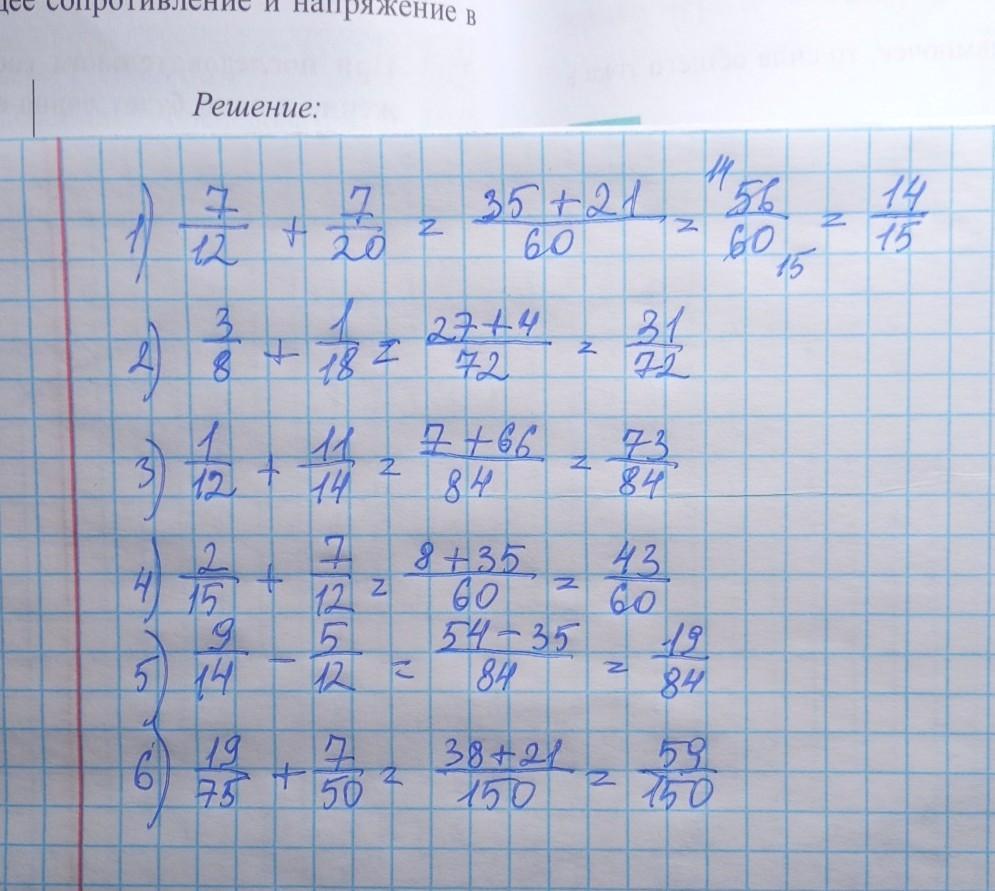 сопротивление и напряжение в
Решение:
1) 7/12 + 7/20 = 35+21/60 = 14 56/60 15 = 14/15
2) 3/8 + 1/18 = 27+4/72 = 31/72
3) 1/12 + 11/14 = 7+66/84 = 73/84
4) 2/15 + 7/12 = 8+35/60 = 43/60
5) 9/14 - 5/12 = 54-35/84 = 19/84
6) 19/75 + 7/50 = 38+21/150 = 59/150